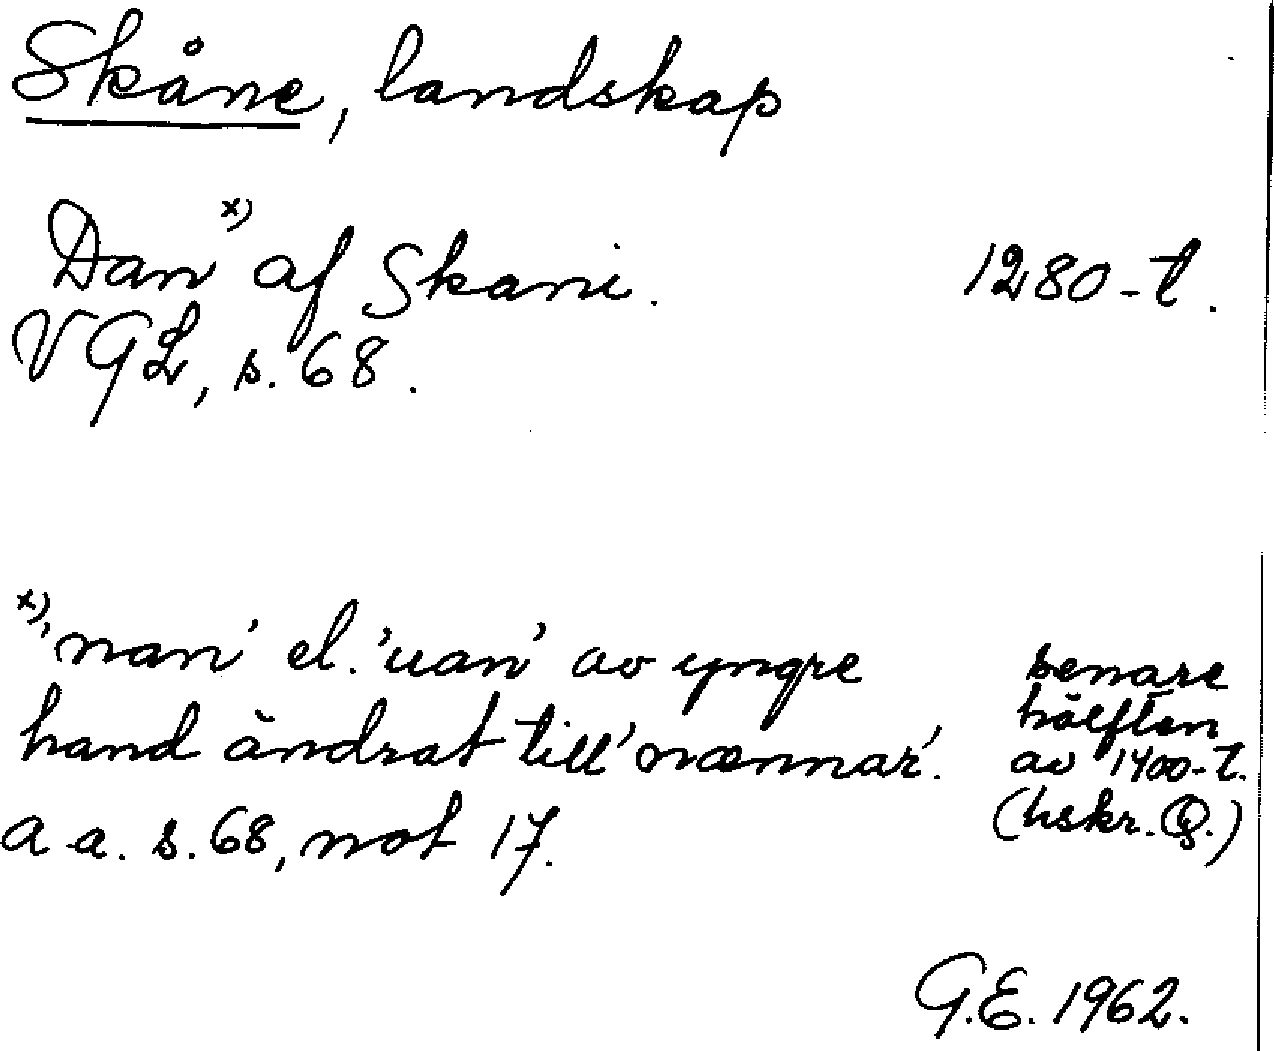 Skåne, landskap
Dan x) af Skani. 1280-t.
VGL, s. 68.
x) 'nan' el. 'uan' av yngre
hand ändrat till 'nænnar'.
a a. s. 68, not 17.
senare
hälften
av 1400-t.
(hskr. B.)
G.E. 1962.